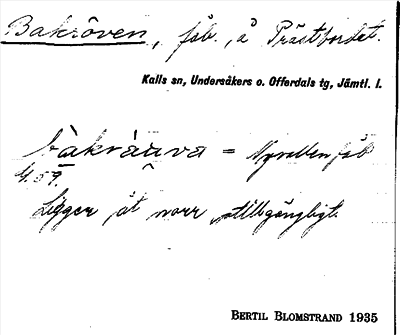 Bakröven, fäb. å Prästbordet.
Kalls sn, Undersåkers o. Offerdals tg, Jämtl. l.
bàkràuva = Nyvallen fäb
4.59.
Ligger åt norr, otillgängligt.
BERTIL BLOMSTRAND 1935